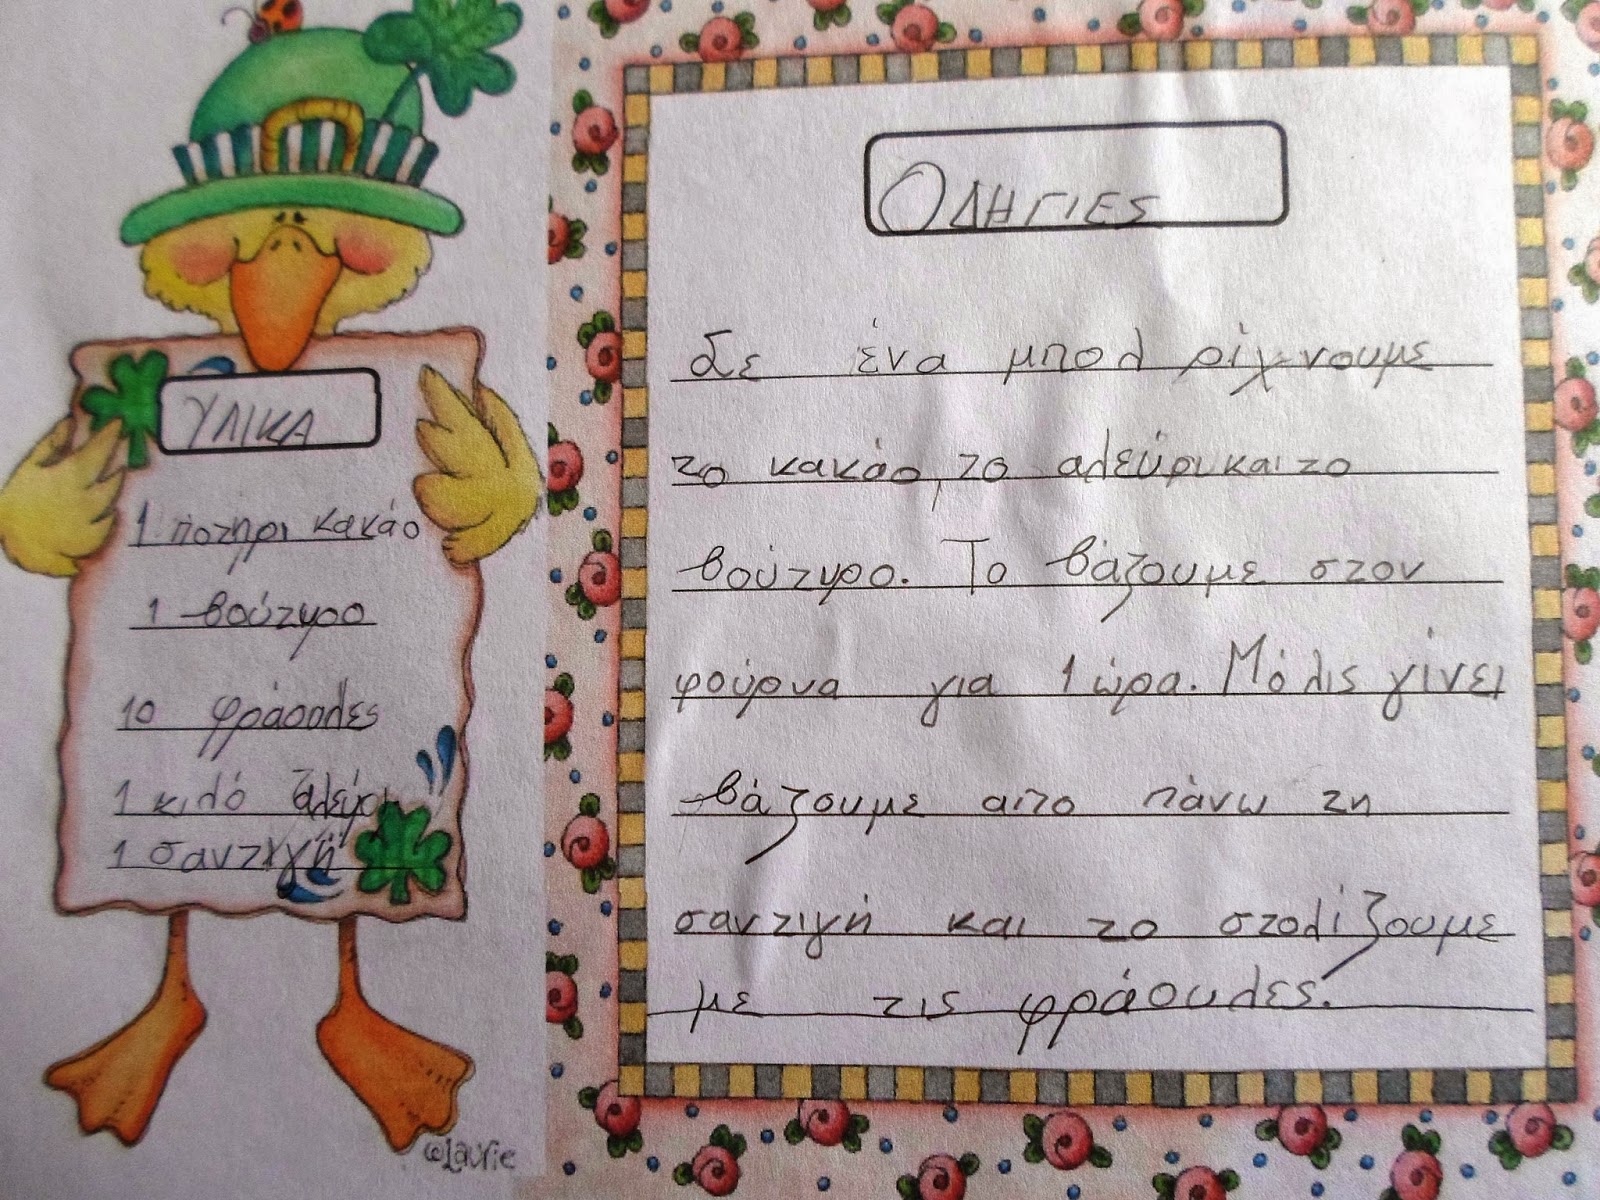 ΥΛΙΚΑ
1 ποτηρι κακάο
1 βούτυρο
10 φράουλες
1 κιλό αλεύρι
1 σαντιγή
©Laurie
ΟΔΗΓΙΕΣ
Σε ένα μπολ ρίχνουμε
το κακάο, το αλεύρι και το
βούτυρο. Το βάζουμε στον
φούρνα για 1 ώρα. Μόλις γίνει
βάζουμε απο πάνω τη
σαντιγή και το στολίζουμε
με τις φράουλες.